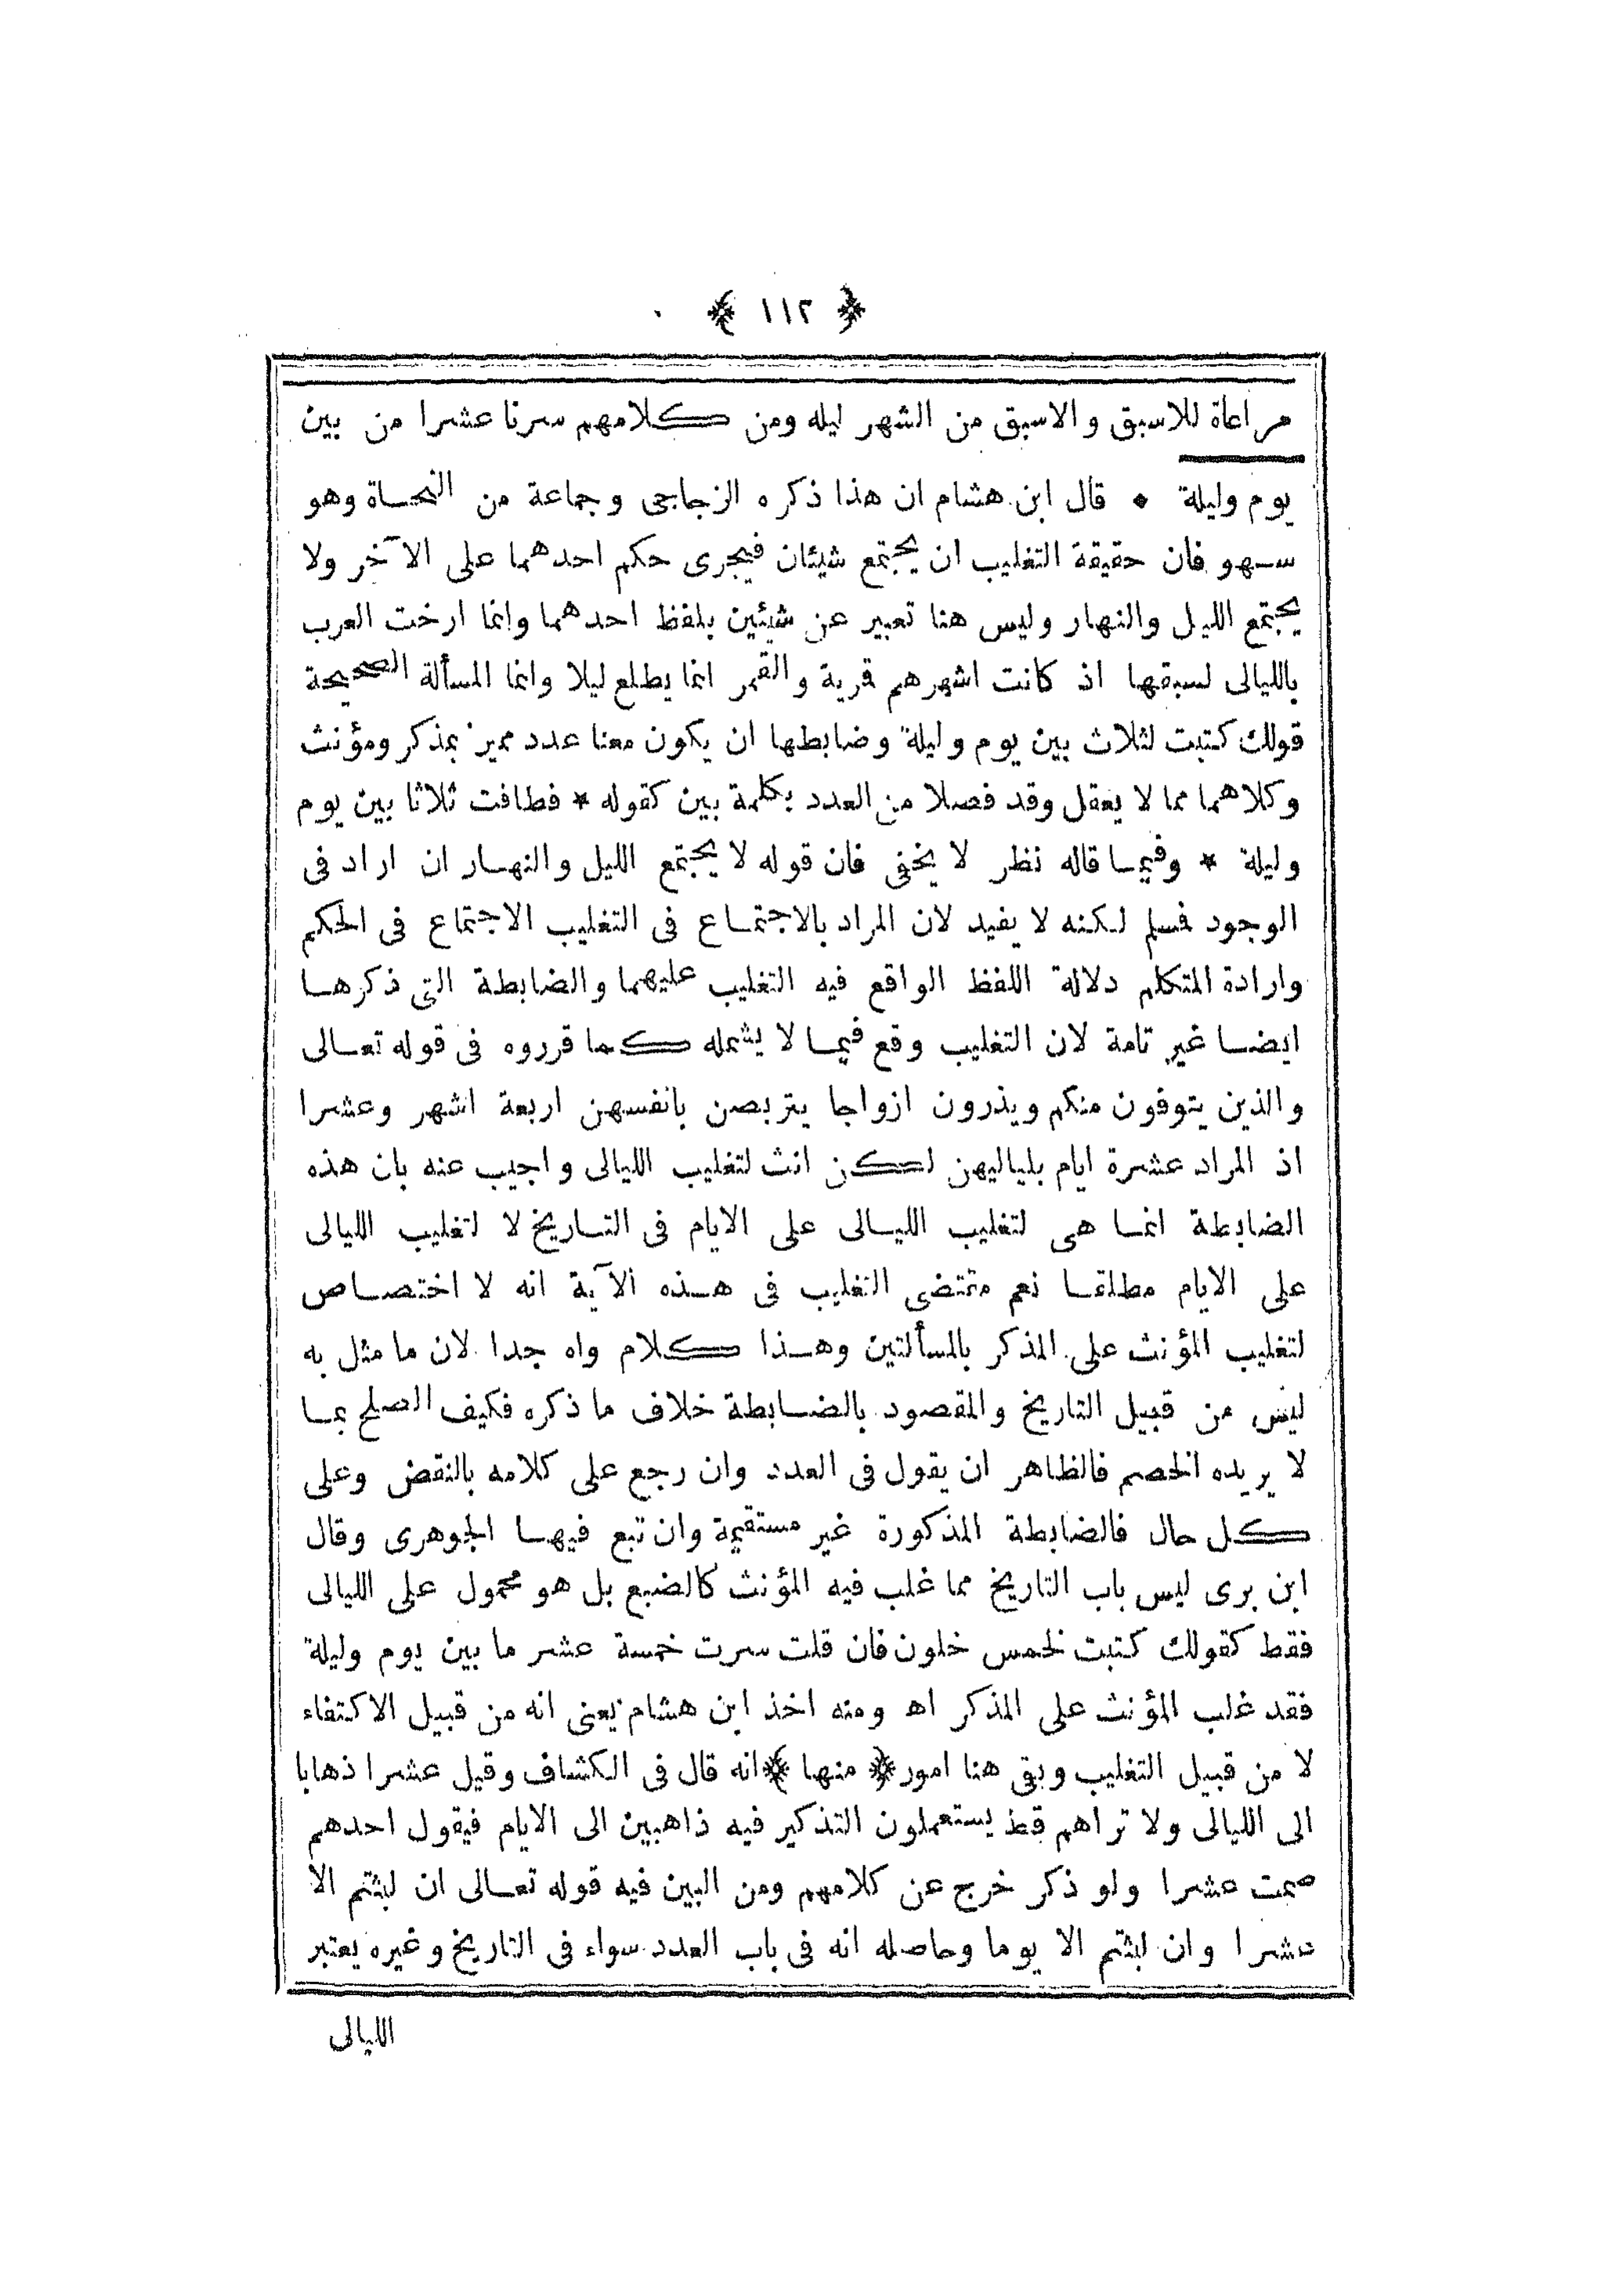 ﴿ ١١٢ ﴾
مراعاة للاسبق والاسبق من الشهر ليله ومن كلامهم سرنا عشرا من بين
يوم وليلة * قال ابن هشام ان هذا ذكره الزجاجى وجماعة من النحاة وهو
سهو فان حقيقة التغليب ان يجتمع شيئان فيجرى حكم احدهما على الآخر ولا
يجتمع الليل والنهار وليس هنا تعبير عن شيئين بلفظ احدهما وانما ارخت العرب
بالليالى لسبقها اذ كانت اشهرهم قرية والقمر انما يطلع ليلا وانما المسألة الصحيحة
قولك كتبت لثلاث بين يوم وليلة وضابطها ان يكون معنا عدد مميز بمذكر ومؤنث
وكلاهما مما لا يعقل وقد فصلا من العدد بكلمة بين كقوله * فطافت ثلاثا بين يوم
وليلة * وفيما قاله نظر لا يخفى فان قوله لا يجتمع الليل والنهار ان اراد فى
الوجود فمسلم لكنه لا يفيد لان المراد بالاجتماع فى التغليب الاجتماع فى الحكم
وارادة المتكلم دلالة اللفظ الواقع فيه التغليب عليهما والضابطة التى ذكرها
ايضا غير تامة لان التغليب وقع فيما لا يشمله كما قرروه فى قوله تعالى
والذين يتوفون منكم ويذرون ازواجا يتربصن بانفسهن اربعة اشهر وعشرا
اذ المراد عشرة ايام بلياليهن لكن انث لتغليب الليالى واجيب عنه بان هذه
الضابطة انما هى لتغليب الليالى على الايام فى التاريخ لا لتغليب الليالى
على الايام مطلقا نعم مقتضى التغليب فى هذه الآية انه لا اختصاص
لتغليب المؤنث على المذكر بالمسألتين وهذا كلام واه جدا لان ما مثل به
ليس من قبيل التاريخ والمقصود بالضابطة خلاف ما ذكره فكيف الصلح بما
لا يريده الخصم فالظاهر ان يقول فى العدد وان رجع على كلامه بالنقض وعلى
كل حال فالضابطة المذكورة غير مستقيمة وان تبع فيها الجوهرى وقال
ابن برى ليس باب التاريخ مما غلب فيه المؤنث كالضبع بل هو محمول على الليالى
فقط كقولك كتبت لخمس خلون فان قلت سرت خمسة عشر ما بين يوم وليلة
فقد غلب المؤنث على المذكر اه ومنه اخذ ابن هشام يعنى انه من قبيل الاكتفاء
لا من قبيل التغليب وبقى هنا امور ﴿ منها ﴾ انه قال فى الكشاف وقيل عشرا ذهابا
الى الليالى ولا تراهم قط يستعملون التذكير فيه ذاهبين الى الايام فيقول احدهم
صمت عشرا ولو ذكر خرج عن كلامهم ومن البين فيه قوله تعالى ان لبثتم الا
عشرا وان لبثتم الا يوما وحاصله انه فى باب العدد سواء فى التاريخ وغيره يعتبر
الليالى